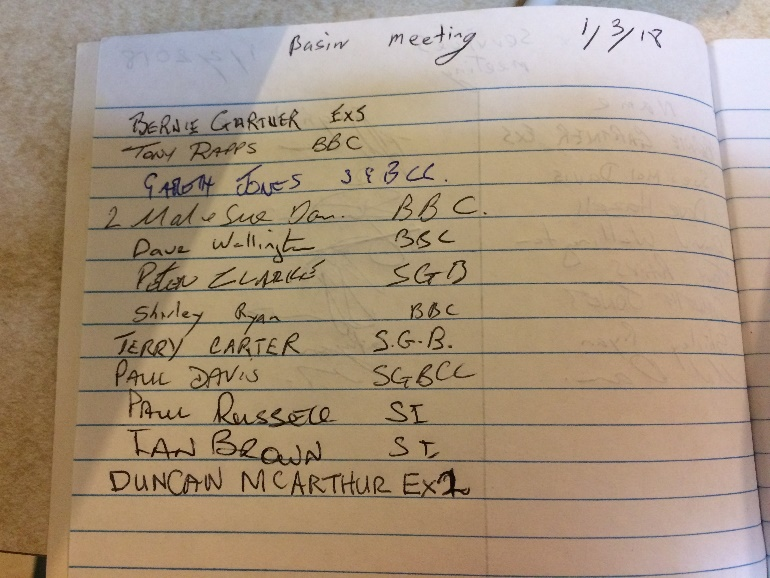 Basin meeting 1/3/18
BERNIE GARTNER EXS
TONY RAPPS BBC
GARETH JONES SGBCC.
2 Mal & Sue Dav. BBC.
Dave Wallington BBC
PETER CLARKE SGB
Shirley Ryan BBC
TERRY CARTER S.G.B.
PAUL DAVIS SGBCC
PAUL RUSSELL SI
IAN BROWN SI
DUNCAN MCARTHUR